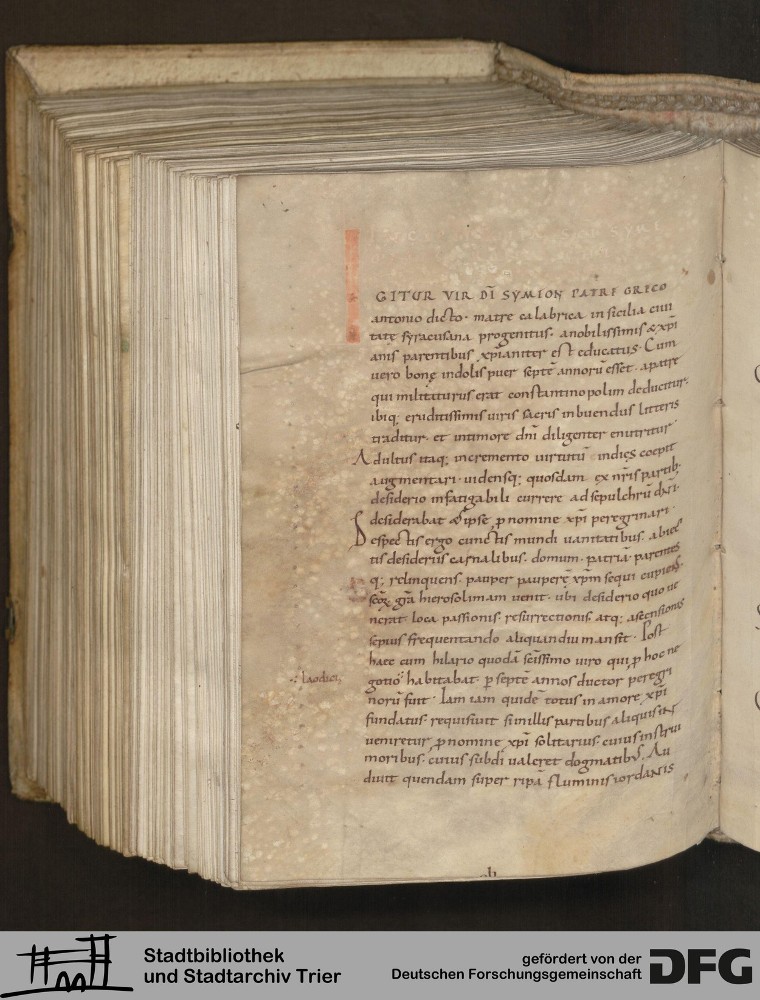 GITUR VIR DI̅ SYMION PATRE GRECO
antonio dicto· matre calabrica in sicilia ciui
tate syracusana progenitus· a nobilissimis & xp̅i
anis parentibus xp̅ianiter est educatus· Cum
uero bonę indolis puer septe̅ annoru̅ esset· a patre
qui militaturus erat constantinopolim deducitur·
ibiq; eruditissimis uiris sacris inbuendus litteris
traditur· et in timore dn̅i diligenter enutritur·
Adultus itaq; incremento uirtutu̅ indies coepit
augmentari· uidensq; quosdam ex nr̅is partib;
desiderio infatigabili currere ad sepulchru̅ dn̅i·
desiderabat & ipse p nomine xp̅i peregrinari·
Despectis ergo cunctis mundi uanitatibus· abiec
tis desideriis carnalibus· domum· patria̅· parentes
q; relinquens· pauper paupere̅ xp̅m sequi cupiens·
gr̅a hierosolimam uenit· ubi desiderio quo ue
nerat· loca passionis· resurrectionis· atq; ascensionis
sepius frequentando aliquandiu mansit· Post
haec cum hilario quoda̅ sc̅issimo uiro qui p hoc ne
gotio habitabat· p septe̅ annos ductor peregri
noru̅ fuit· Iam iam quide̅ totus in amore xp̅i
fundatus· requisiuit si in illis partibus aliquis in
ueniretur p nomine xp̅i solitarius· cuius instrui
moribus· cuius subdi ualeret dogmatibus· Au
diuit quendam super ripa̅ fluminis iordanis
laodici,
Stadtbibliothek
und Stadtarchiv Trier
gefördert von der
Deutschen Forschungsgemeinschaft
DFG